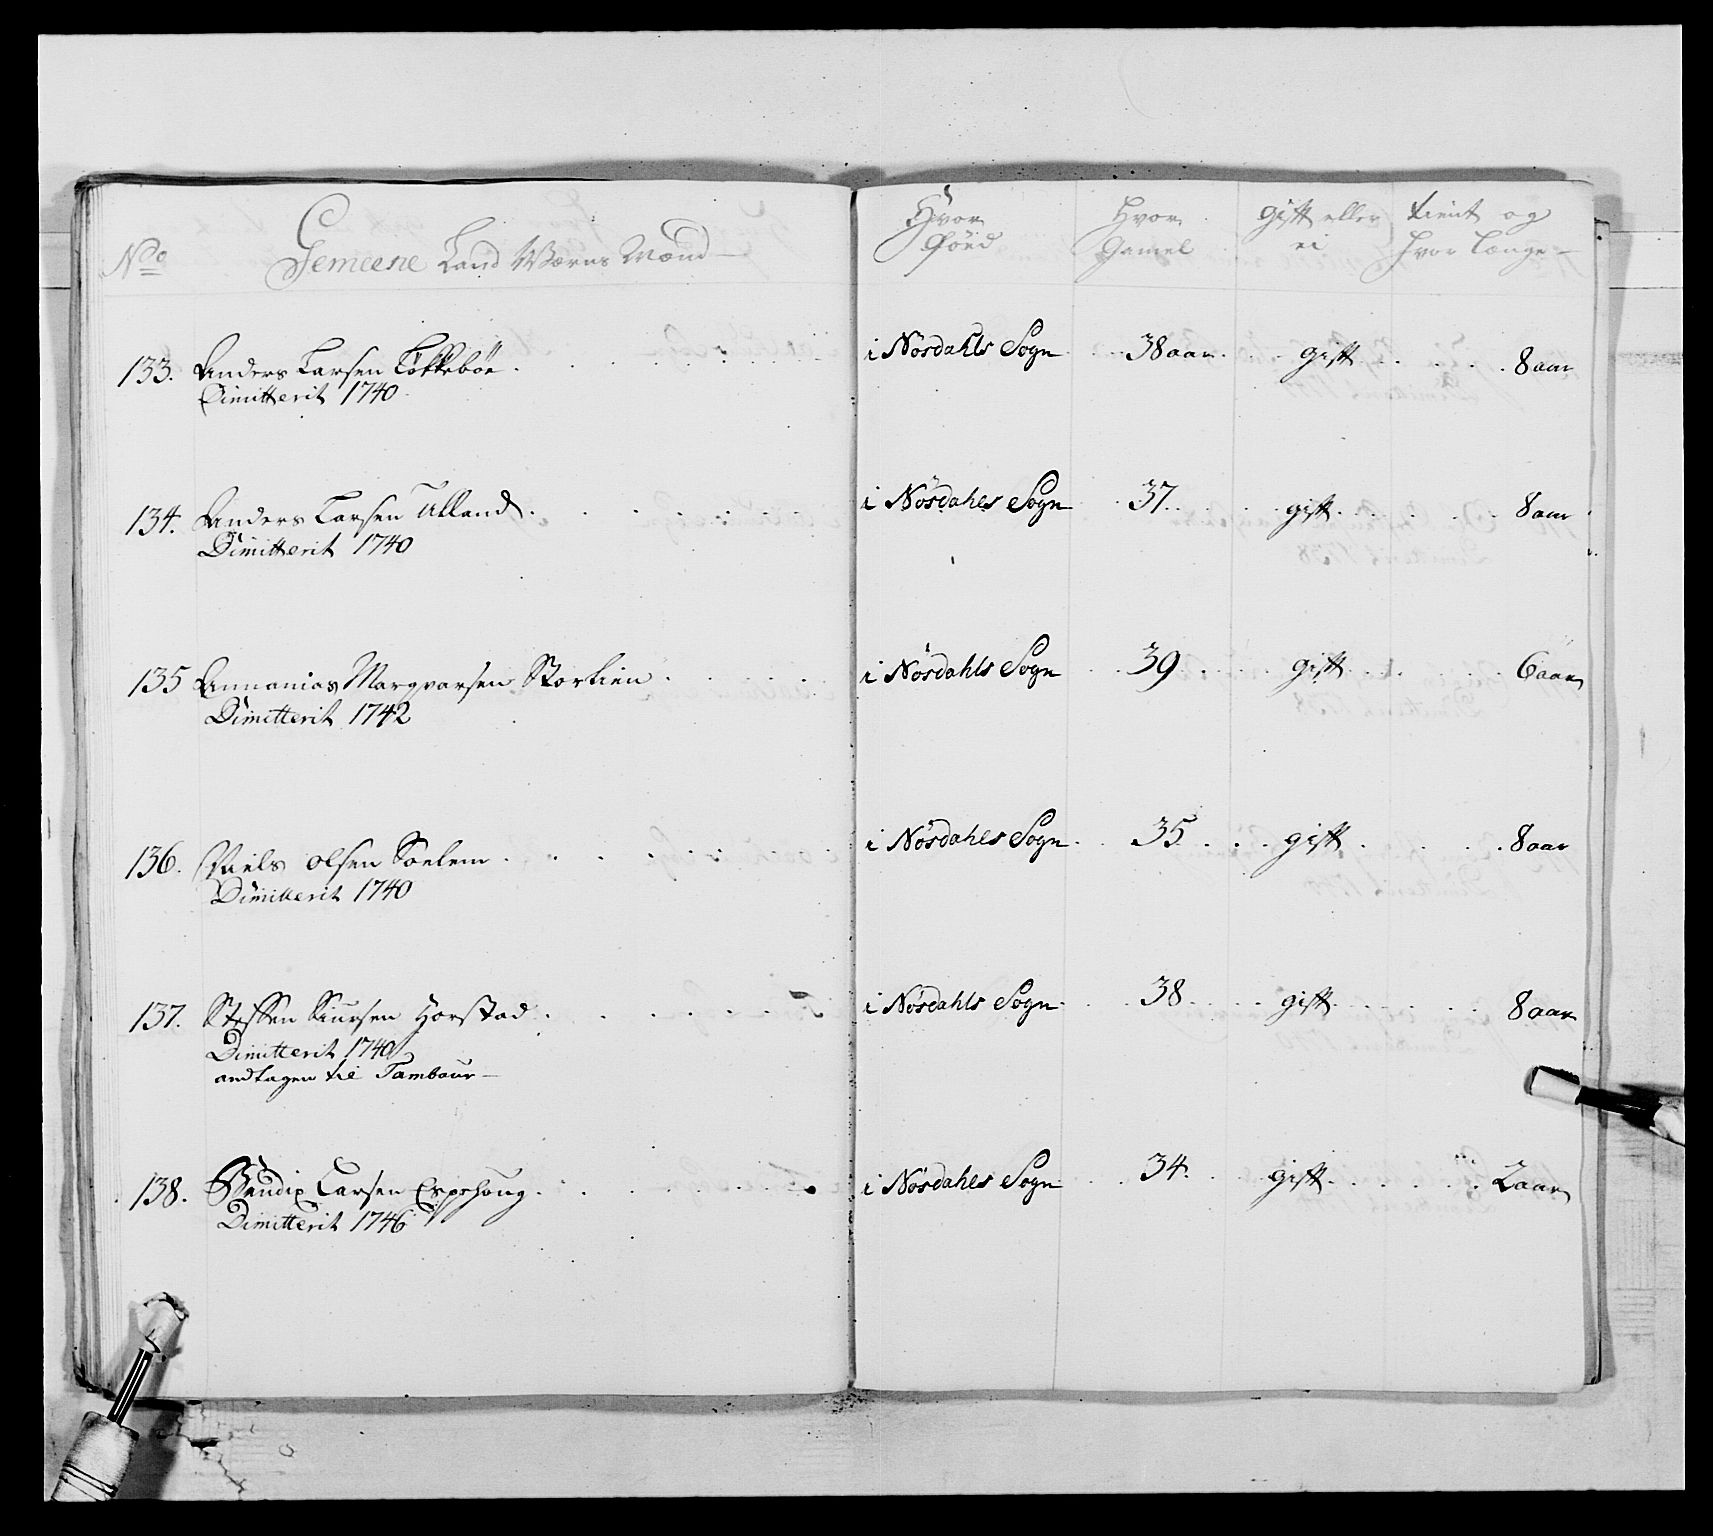 No Gemeene Land Wærns Mænd Hvor Föed Hvor Gamel gift eller ei tient og hvor længe
133. Anders Larsen Løkkeböe i Nördahls Sogn 38 aar gift 8 aar
Dimitterit 1740
134. Anders Larsen Ulland i Nördahls Sogn 37 gift 8 aar
Dimitterit 1740
135 Annanias Marqvarsen Storlien i Nördahls Sogn 39 gift 6 aar
Dimitterit 1742
136. Niels Olsen Soelem i Nördahls Sogn 35 gift 8 aar
Dimitterit 1740
137. Steffen Siursen Horstad i Nördahls Sogn 38 gift 8 aar
Dimitterit 1740
andtagen til Tambour
138. Bendix Larsen Espehoug i Nördahls Sogn 34 gift 2 aar
Dimitterit 1746